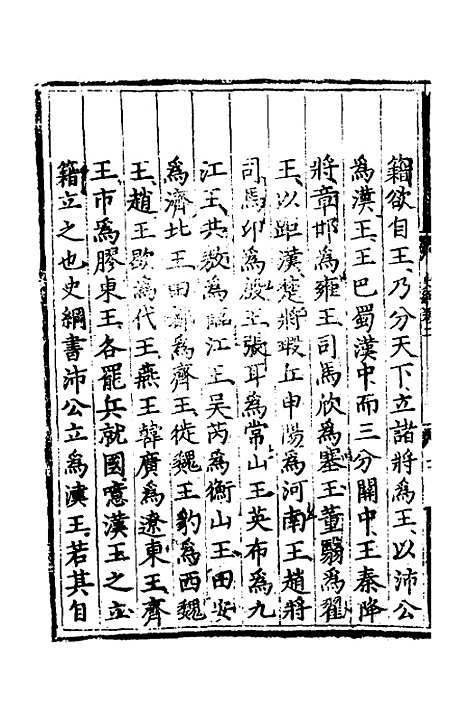 籍欲自王乃分天下立諸將爲王以沛公
爲漢王王巴蜀漢中而三分關中王秦降
將章邯爲雍王司馬欣爲塞王董翳爲翟
王以距漢楚將瑕丘申陽爲河南王趙將
司馬卬爲殷王張耳爲常山王英布爲九
江王共敖爲臨江王吳芮爲衡山王田安
爲濟北王田都爲齊王徙魏王豹爲西魏
王趙王歇爲代王燕王韓廣爲遼東王齊
王市爲膠東王各罷兵就國噫漢王之立
籍立之也史綱書沛公立爲漢王若其自